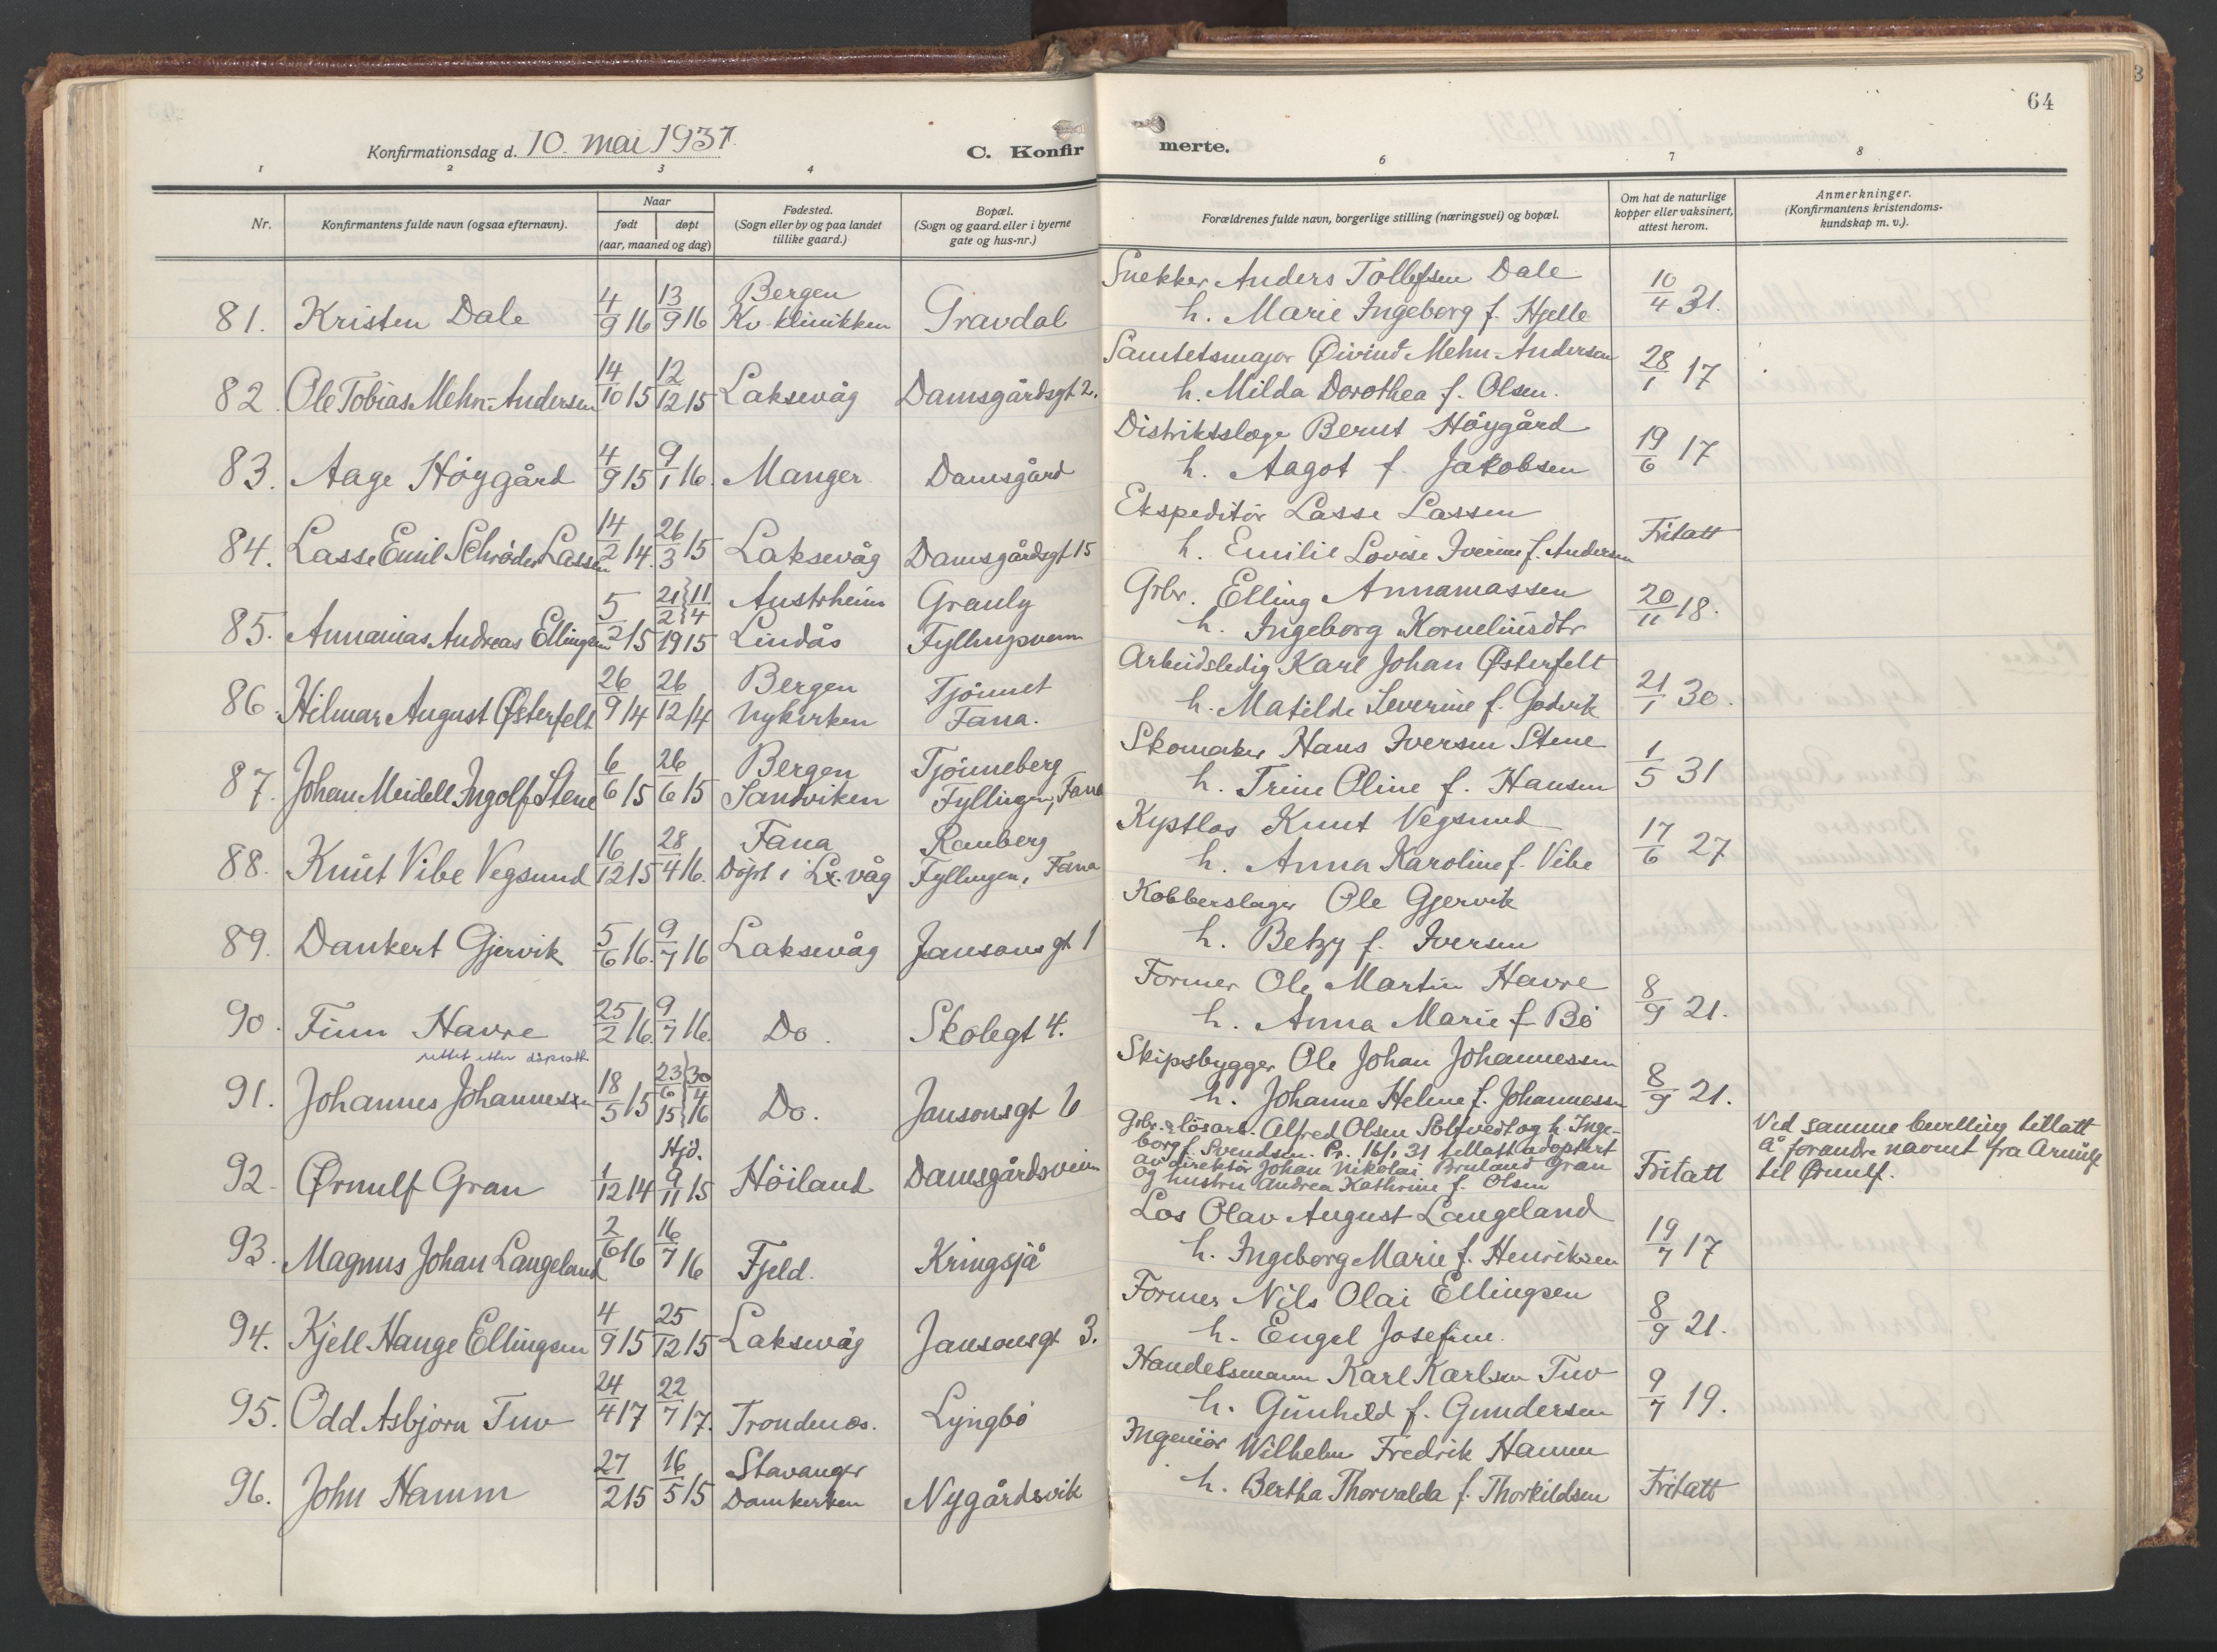 64
Konfirmationsdag d. 10. mai 1931.
C. Konfirmerte.
1 2 3 4 6 7 8
Nr.
Konfirmantens fulde navn (ogsaa efternavn).
Naar
født døpt
(aar, maaned og dag)
Fødested.
(Sogn eller by og paa landet
tillike gaard.)
Bopæl.
(Sogn og gaard. eller i byerne
gate og hus-nr.)
Forældrenes fulde navn, borgerlige stilling (næringsvei) og bopæl.
Om hat de naturlige
kopper eller vaksinert,
attest herom.
Anmerkninger.
(Konfirmantens kristendoms-
kundskap m. v.).
81. Kristen Dale 4/9 16 13/9 16 Bergen
Kv. klinikken Gravdal
Snekker Anders Tollefsen Dale
h. Marie Ingeborg f. Hjelle 10/4 31.
82 Ole Tobias Mehn-Andersen 14/10 15 12/12 15 Laksevåg Damsgårdsgt 2.
Sanitetsmajor Øivind Mehn-Andersen
h. Milda Dorothea f. Olsen. 28/1 17
83. Aage Höygård 4/9 15 9/1 16. Manger Damsgård
Distriktslæge Bernt Höygård
h. Aagot f. Jakobsen 19/6 17
84. Lasse Emil Schröder Lassen 14/2 14. 26/3 15 Laksevåg Damsgårdsgt 15
Ekspeditör Lasse Lassen
h. Emilie Lovise Iverine f. Andersen Fritatt
85. Annanias Andreas Ellingsen 5/2 15 21/2 19 } 11/4 15 Austrheim
Lindås
Grbr. Elling Annanassen
h. Ingeborg Korneliusdtr 20/11 18.
86. Hilmar August Østerfelt 26/9 14 26/12 14 Bergen
Nykirken Tjönnet
Fana.
Arbeidsledig Karl Johan Østerfelt
h. Matilde Severine f. Godvik 21/1 30.
87. Johan Meidell Ingolf Stene 6/6 15 26/6 15 Bergen
Sandviken Tjönneberg
Fyllingen, Fana
Skomaker Hans Iversen Stene
h. Trine Oline f. Hansen 1/5 31
88. Knut Vibe Vegsund 16/12 15 28/4 16. Fana
Döpt i Lx. våg Ramberg
Fyllingen, Fana
Kystlos Knut Vegsund
h. Anna Karoline f. Vibe 17/6 27
89. Dankert Gjervik 5/6 16. 9/7 16 Laksevåg Jansons gt 1
Kobberslager Ole Gjervik
h. Betzy f. Iversen
90. Finn Havre 25/2 16. 9/7 16. Do. Skolegt 4.
Former Ole Martin Havre
h. Anna Marie f. Bö 8/9 21.
rettet etter döpsatt
91. Johannes Johannessen 18/5 15 23/6 15 } 30/4 16 Do. Jansonsgt 6
Skipsbygger Ole Johan Johannessen
h. Johanne Helene f. Johannessen 8/9 21.
92. Ørnulf Gran 1/12 14 Hjd. 9/11 15 Höiland Damsgårdsveien
Grbr. & lösarb. Alfred Olsen Solfvedt og h. Inge-
borg f. Svendsen. Pr. 16/1. 31 tillatt adoptert
av direktör Johan Nikolai Bruland Gran
og hustru Andrea Kathrine f. Olsen Fritatt
Ved samme bevilling tillatt
å forandre navnet fra Arnulf
til Ørnulf.
93. Magnus Johan Langeland 2/6 16 16/7 16 Fjeld. Kringsjå
Los Olav August Langeland
h. Ingeborg Marie f. Henriksen 19/7 17
94. Kjell Hauge Ellingsen 4/9 15 25/12 15 Laksevåg Jansonsgt 3.
Former Nils Olai Ellingsen
h. Engel Josefine. 8/9 21.
95. Odd Asbjørn Tuv 24/4 17 22/7 17. Trondenes. Lyngbö
Handelsmann Karl Karlsen Tuv
h. Gunhild f. Gundersen 9/7 19.
96. John Hamm 27/2 15 16/5 15 Stavanger
Domkirken Nygårdsvik
Ingeniör Wilhelm Fredrik Hamm
h. Bertha Thorvalda f. Thorkildsen Fritatt